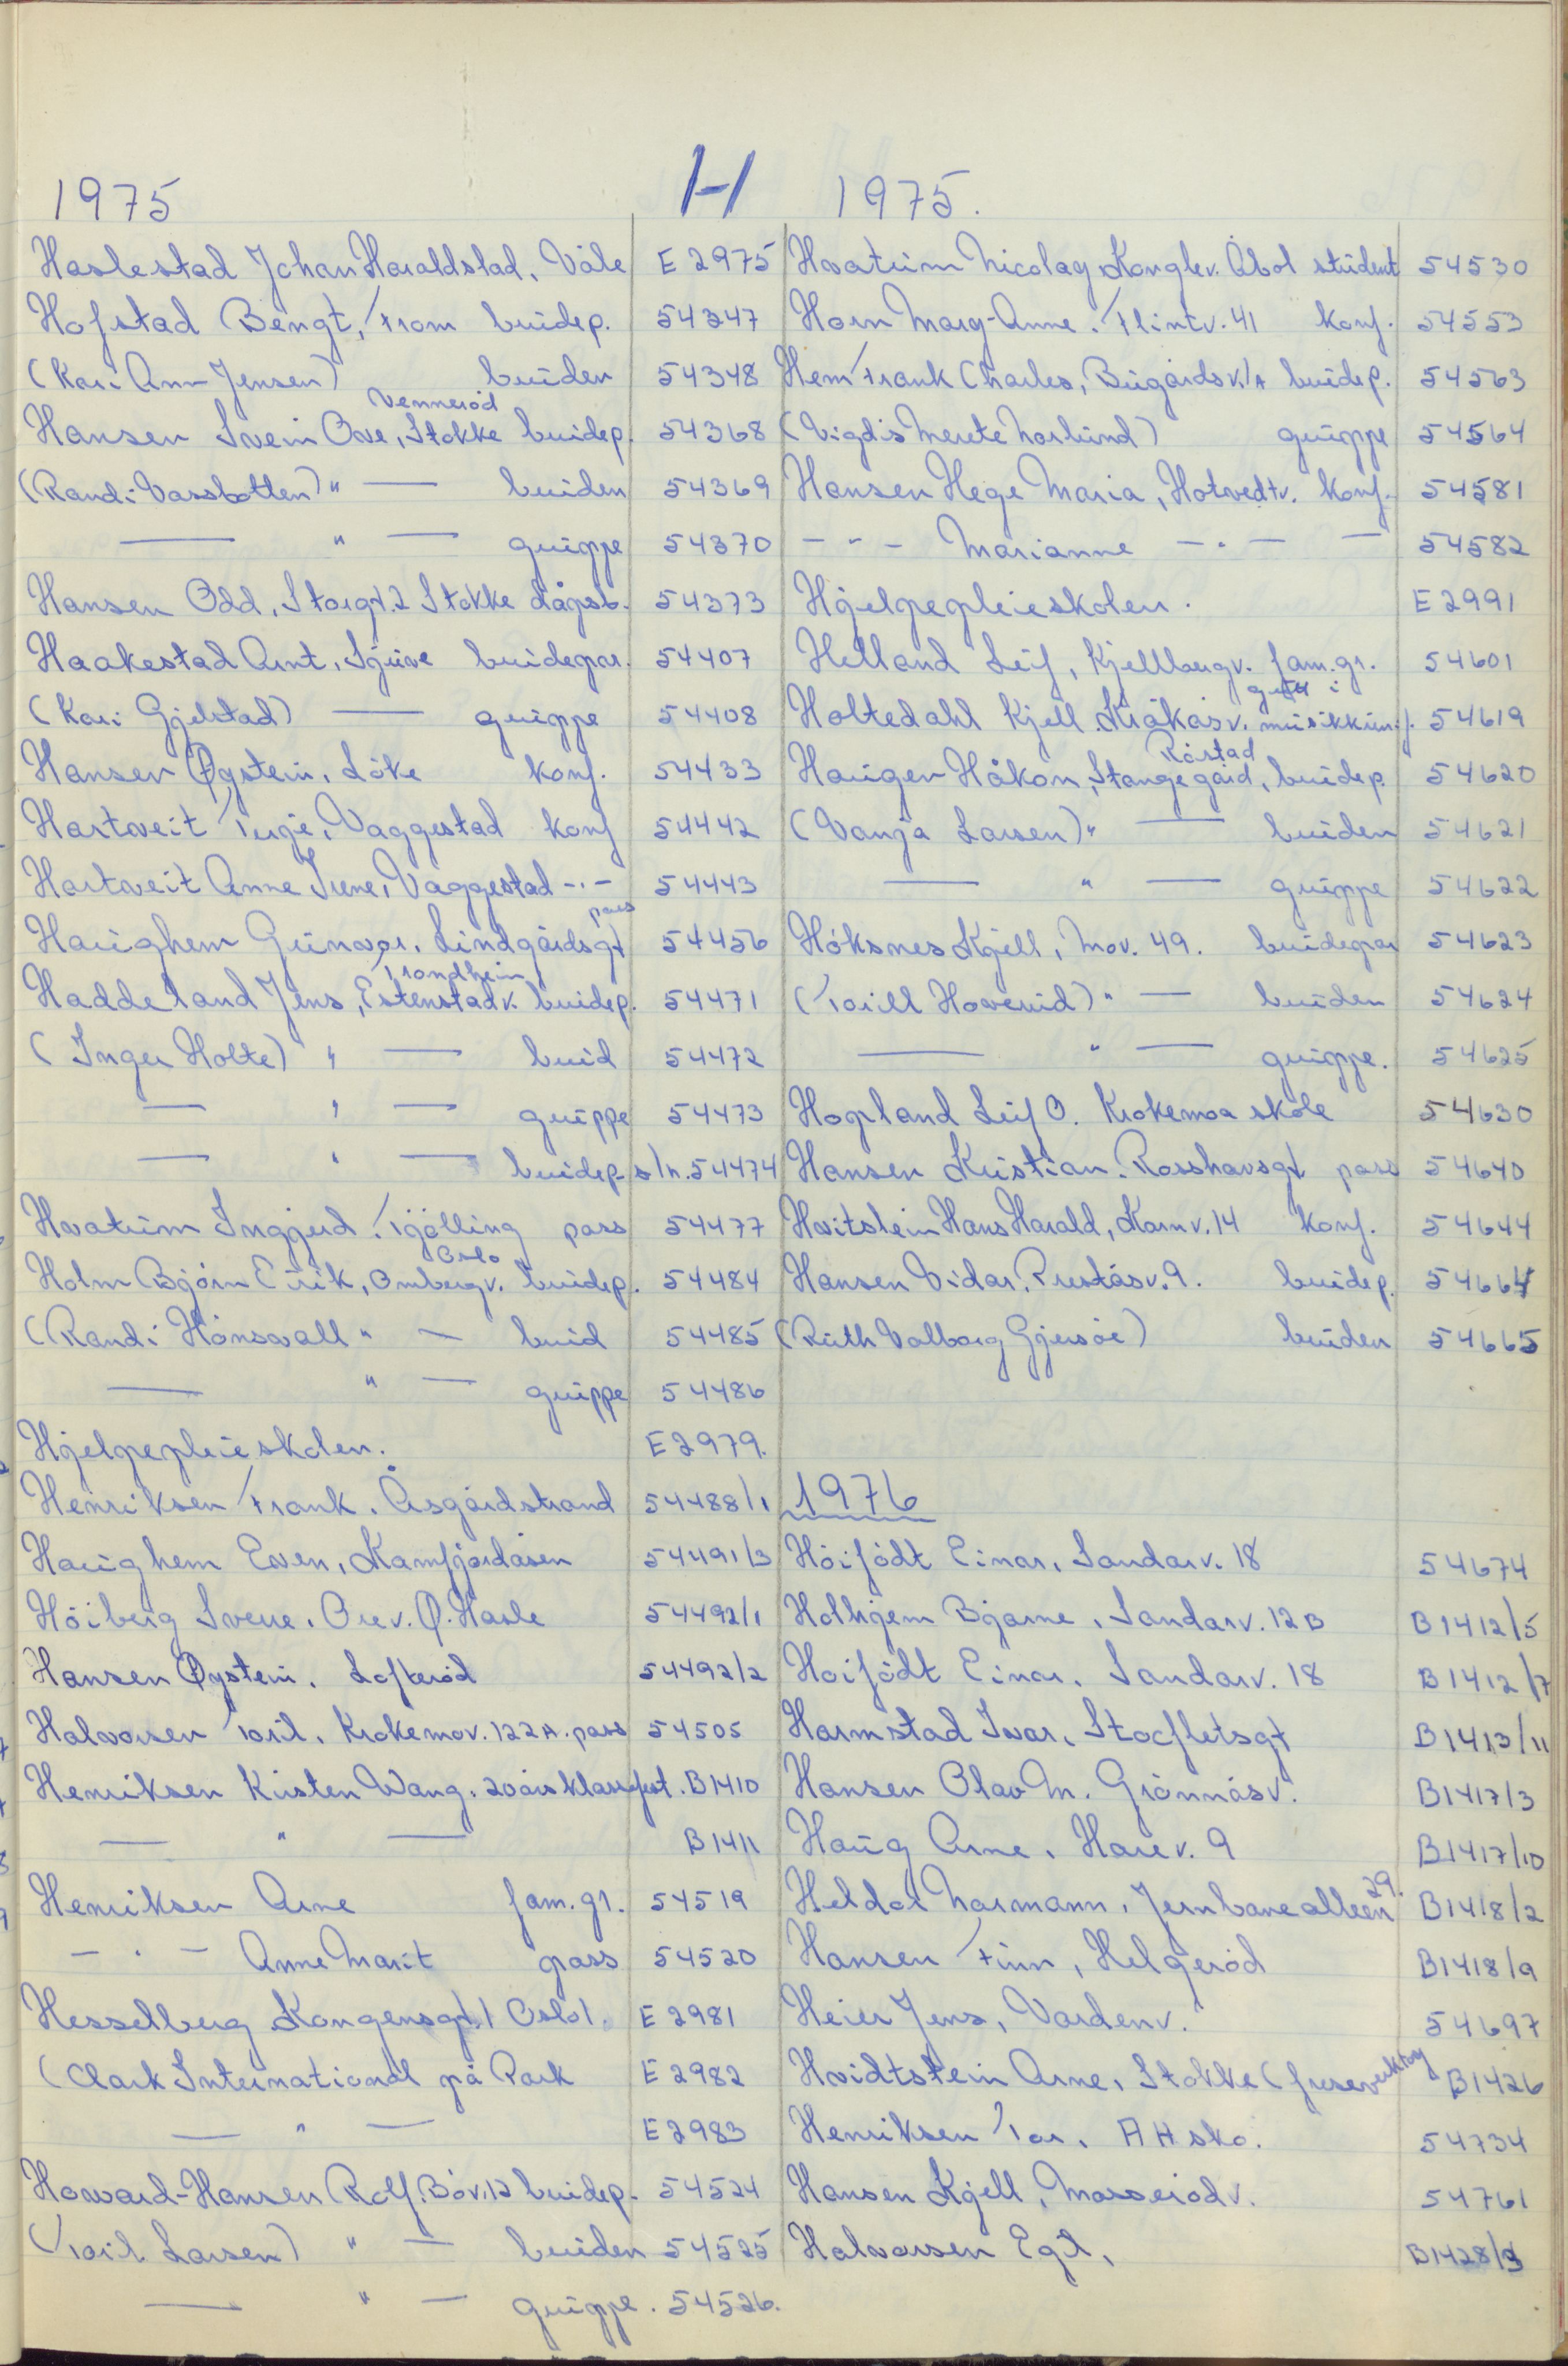 H
1975
Haslestad Johan Haraldstad, Våle E 2975
Hofstad Bengt, Fram brudep. 54347
(Kari Ann Jensen) bruden 54348
Vennerød
Hansen Svein Ove, Stokke brudep. 54368
(Randi Vassbotten) " — bruden 54369
— " — gruppe 54370
Hansen Odd, Storgt. 2 Stokke dåpsb. 54373
Haakestad Arnt, Sjuve brudepar. 54407
(Kari Gjelstad) — gruppe 54408
Hansen Øystein, Løke konf. 54433
Hartveit Terje, Vaggestad konf 54442
Hartveit Anne Irene, Vaggestad -"- 54443
pass
Haughem Gunvor, Lindgårdsgt 54456
Trondheim
Haddeland Jens, Estenstadv. brudep. 54471
(Inger Holte) " — brud 54472
— " — gruppe 54473
— " — brudep. s/h. 54474
Hvatum Ingjerd, Tjølling pass 54477
Oslo
Holm Bjørn Eirik, Ombergv. brudep. 54484
(Randi Hønsvall " — brud 54485
— " — gruppe 54486
Hjelpepleieskolen. E 2979.
Henriksen Frank, Åsgårdstrand 54488/1
Haughem Even, Kamfjordåsen 54491/3
Høiberg Sverre, Orev. Ø. Hasle 54492/1
Hansen Øystein, Lofterød 54492/2
Halvorsen Toril, Krokemov. 122 A. pass 54505
Henriksen Kirsten Wang, 20 års klassefest. B1410
— " — B1411
Henriksen Arne fam. gr. 54519
- " - Anne Marit pass 54520
Hesselberg Kongensgt. 1 Oslo 1. E 2981
(Clark International på Park E 2982
— " — E 2983
Havard-Hansen Rolf, Bøv. 12 brudep. 54524
(Toril Larsen) " — bruden 54525
— " — gruppe. 54526.
1975.
Hvatum Nicolay Konglev. Åbol student 54530
Horn Mary-Anne. Flintv. 41 konf. 54553
Hem Frank Charles, Bugårdsv. 1A brudep. 54563
(Vigdis Merete Norlund) gruppe 54564
Hansen Hege Maria, Hotvedtv. konf. 54581
- " - Marianne - " - — 54582
Hjelpepleieskolen. E 2991
Helland Leif, Kjellbergv. fam. gr. 54601
Holtedahl Kjell, Kråkåsv. musikkun.f. 54619
Råstad
Haugen Håkon, Stange gård, brudep. 54620
(Vanja Larsen) " — bruden 54621
— " — gruppe 54622
Høksnes Kjell, Mov. 49. brudepar 54623
(Torill Hoverud) " — bruden 54624
— " — gruppe. 54625
Hopland Leif O. Krokemoa skole 54630
Hansen Kristian, Rosshavsgt pass 54640
Hvitstein Hans Harald, Kornv. 14 konf. 54644
Hansen Vidar, Preståsv. 9. brudep. 54664
(Ruth Valborg Gjersøe) bruden 54665
1976
Høifødt Einar, Sandarv. 18 54674
Holhjem Bjarne, Sandarv. 12 B B1412/5
Høifødt Einar, Sandarv. 18 B1412/7
Harmstad Ivar, Stocfletsgt B1413/11
Hansen Olav M. Grønnåsv. B1417/3
Haug Arne, Harev. 9 B1417/10
Heldal Normann, Jernbanealleen 29. B1418/2
Hansen Finn, Helgerød B1418/9
Heier Jens, Vardenv. 54697
Hvidtstein Arne, Stokke (freseverktøy B1426
Henriksen Tor, A H sko. 54734
Hansen Kjell, Mosserødv. 54761
Halvorsen Egil, B1428/3